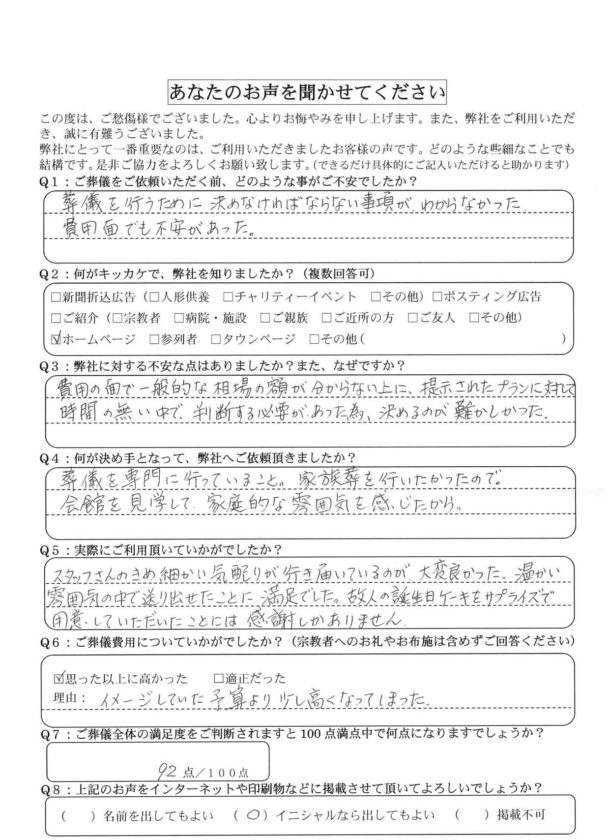 あなたのお声を聞かせてください
この度は、ご愁傷様でございました。心よりお悔やみを申し上げます。また、弊社をご利用いただ
き、誠に有難うございました。
弊社にとって一番重要なのは、ご利用いただきましたお客様の声です。どのような些細なことでも
結構です。是非ご協力をよろしくお願い致します。(できるだけ具体的にご記入いただけると助かります)
Q1：ご葬儀をご依頼いただく前、どのような事がご不安でしたか？
葬儀を行うために決めなければならない事項が、わからなかった
費用面でも不安があった。
Q2：何がキッカケで、弊社を知りましたか？（複数回答可）
□新聞折込広告（□人形供養 □チャリティーイベント □その他）□ポスティング広告
□ご紹介（□宗教者 □病院・施設 □ご親族 □ご近所の方 □ご友人 □その他）
☑ホームページ □参列者 □タウンページ □その他( )
Q3：弊社に対する不安な点はありましたか？また、なぜですか？
費用の面で一般的な相場の額が分からない上に、提示されたプランに対して
時間の無い中で、判断する必要があった為、決めるのが難かしかった。
Q4：何が決め手となって、弊社へご依頼頂きましたか？
葬儀を専門に行っていること。家族葬を行いたかったので。
会館を見学して、家庭的な雰囲気を感じたから。
Q5：実際にご利用頂いていかがでしたか？
スタッフさんのきめ細かい気配りが行き届いているのが、大変良かった。温かい
雰囲気の中で送り出せたことに満足でした。故人の誕生日ケーキをサプライズで
用意していただいたことには感謝しかありません。
Q6：ご葬儀費用についていかがでしたか？（宗教者へのお礼やお布施は含めずご回答ください）
☑思った以上に高かった □適正だった
理由：イメージしていた予算より少し高くなってしまった。
Q7：ご葬儀全体の満足度をご判断されますと100点満点中で何点になりますでしょうか？
92点/100点
Q8：上記のお声をインターネットや印刷物などに掲載させて頂いてよろしいでしょうか？
（ ）名前を出してもよい （○）イニシャルなら出してもよい （ ）掲載不可